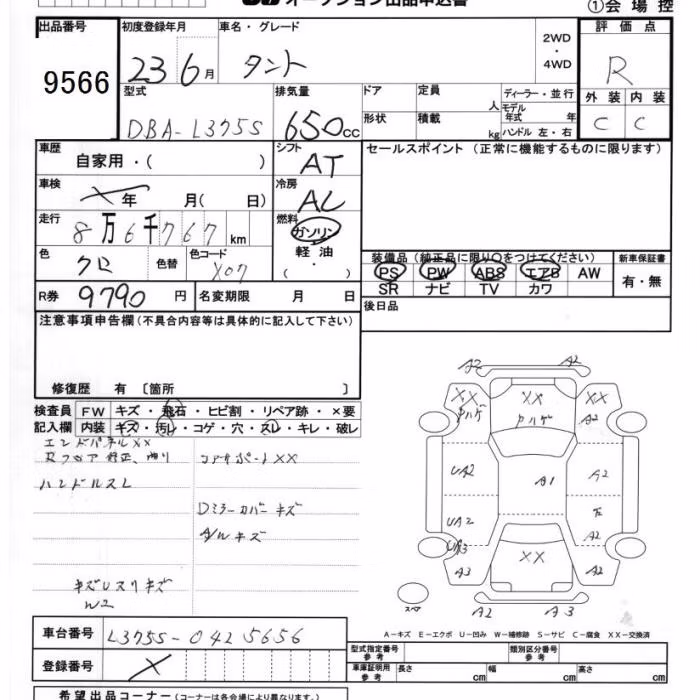 オークション出品申込書
①会場控
出品番号
9566
初度登録年月
23 6月
車名・グレード
タント
2WD
・
4WD
評価点
R
外装 内装
C C
型式
DBA-L375S
排気量
650cc
ドア
定員
人
形状
積載
kg
ディーラー・並行
モデル
年式 年
ハンドル 左・右
車歴
自家用・( )
シフト
AT
セールスポイント(正常に機能するものに限ります)
車検
年 月( 日)
冷房
AC
走行
8万6千767km
燃料
ガソリン
軽油
・
( )
色
クロ
色替
色コード
X07
装備品(純正品に限り○をつけてください)
PS PW ABS エアB AW
SR ナビ TV カワ
新車保証書
有・無
R券
9790円
名変期限 月 日
後日品
注意事項申告欄(不具合内容等は具体的に記入して下さい)
修復歴 有〔箇所 〕
検査員 FW キズ・飛石・ヒビ割・リペア跡・×要
記入欄 内装 キズ・汚れ・コゲ・穴・スレ・キレ・破レ
エンドパネルXX
コアサポートXX
ハンドルスレ
Dミラーカバーキズ
W2
A2 A2
XX XX XX
A2
UA2 A1 A2
UA2 A2
UA3 XX
A3 A2
スペア
A2 A3
A-キズ E-エクボ U-凹み W-補修跡 S-サビ C-腐食 XX-交換済
車台番号
L375S-0425656
登録番号
型式指定番号
参考
類別区分番号
参考
車庫証明用
参考
長さ cm
幅 cm
高さ cm
希望出品コーナー(コーナーは各会場により異なります。)